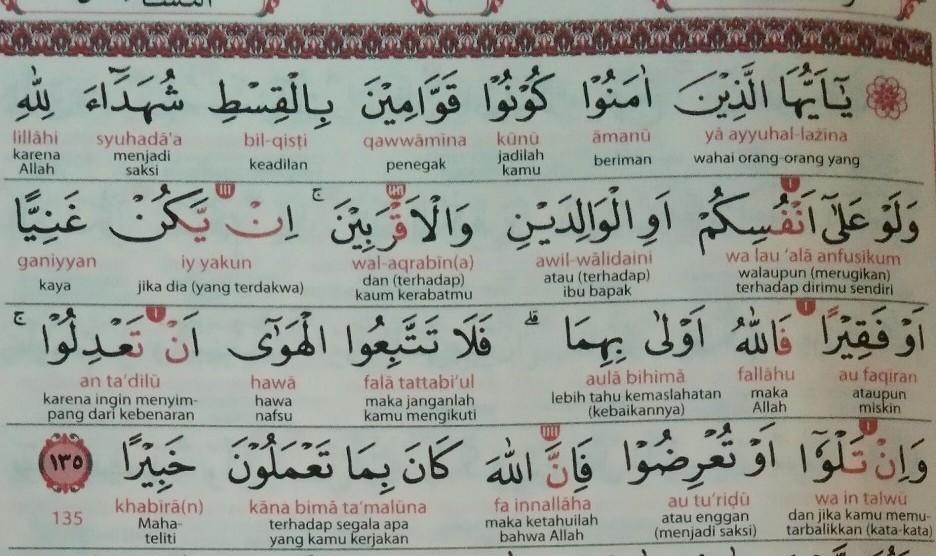 يٰٓاَيُّهَا الَّذِيْنَ اٰمَنُوْا كُوْنُوْا قَوَّامِيْنَ بِالْقِسْطِ شُهَدَاۤءَ لِلّٰهِ
yā ayyuhal-lażīna āmanū kūnū qawwāmīna bil-qisṭi syuhadā'a lillāhi
wahai orang-orang yang beriman jadilah kamu penegak keadilan menjadi saksi karena Allah
وَلَوْ عَلٰٓى اَنْفُسِكُمْ اَوِ الْوَالِدَيْنِ وَالْاَقْرَبِيْنَ ۚ اِنْ يَّكُنْ غَنِيًّا
wa lau 'alā anfusikum awil-wālidaini wal-aqrabīn(a) iy yakun ganiyyan
walaupun (merugikan) terhadap dirimu sendiri atau (terhadap) ibu bapak dan (terhadap) kaum kerabatmu jika dia (yang terdakwa) kaya
اَوْ فَقِيْرًا فَاللّٰهُ اَوْلٰى بِهِمَا ۗ فَلَا تَتَّبِعُوا الْهَوٰٓى اَنْ تَعْدِلُوْا ۚ
au faqīran fallāhu aulā bihimā falā tattabi'ul hawā an ta'dilū
ataupun miskin maka Allah lebih tahu kemaslahatan (kebaikannya) maka janganlah kamu mengikuti hawa nafsu karena ingin menyim-pang dari kebenaran
وَاِنْ تَلْوٗٓا اَوْ تُعْرِضُوْا فَاِنَّ اللّٰهَ كَانَ بِمَا تَعْمَلُوْنَ خَبِيْرًا ١٣٥
wa in talwū au tu'riḍū fa innallāha kāna bimā ta'malūna khabīrā(n) 135
dan jika kamu memu-tarbalikkan (kata-kata) atau enggan (menjadi saksi) maka ketahuilah bahwa Allah terhadap segala apa yang kamu kerjakan Maha-teliti